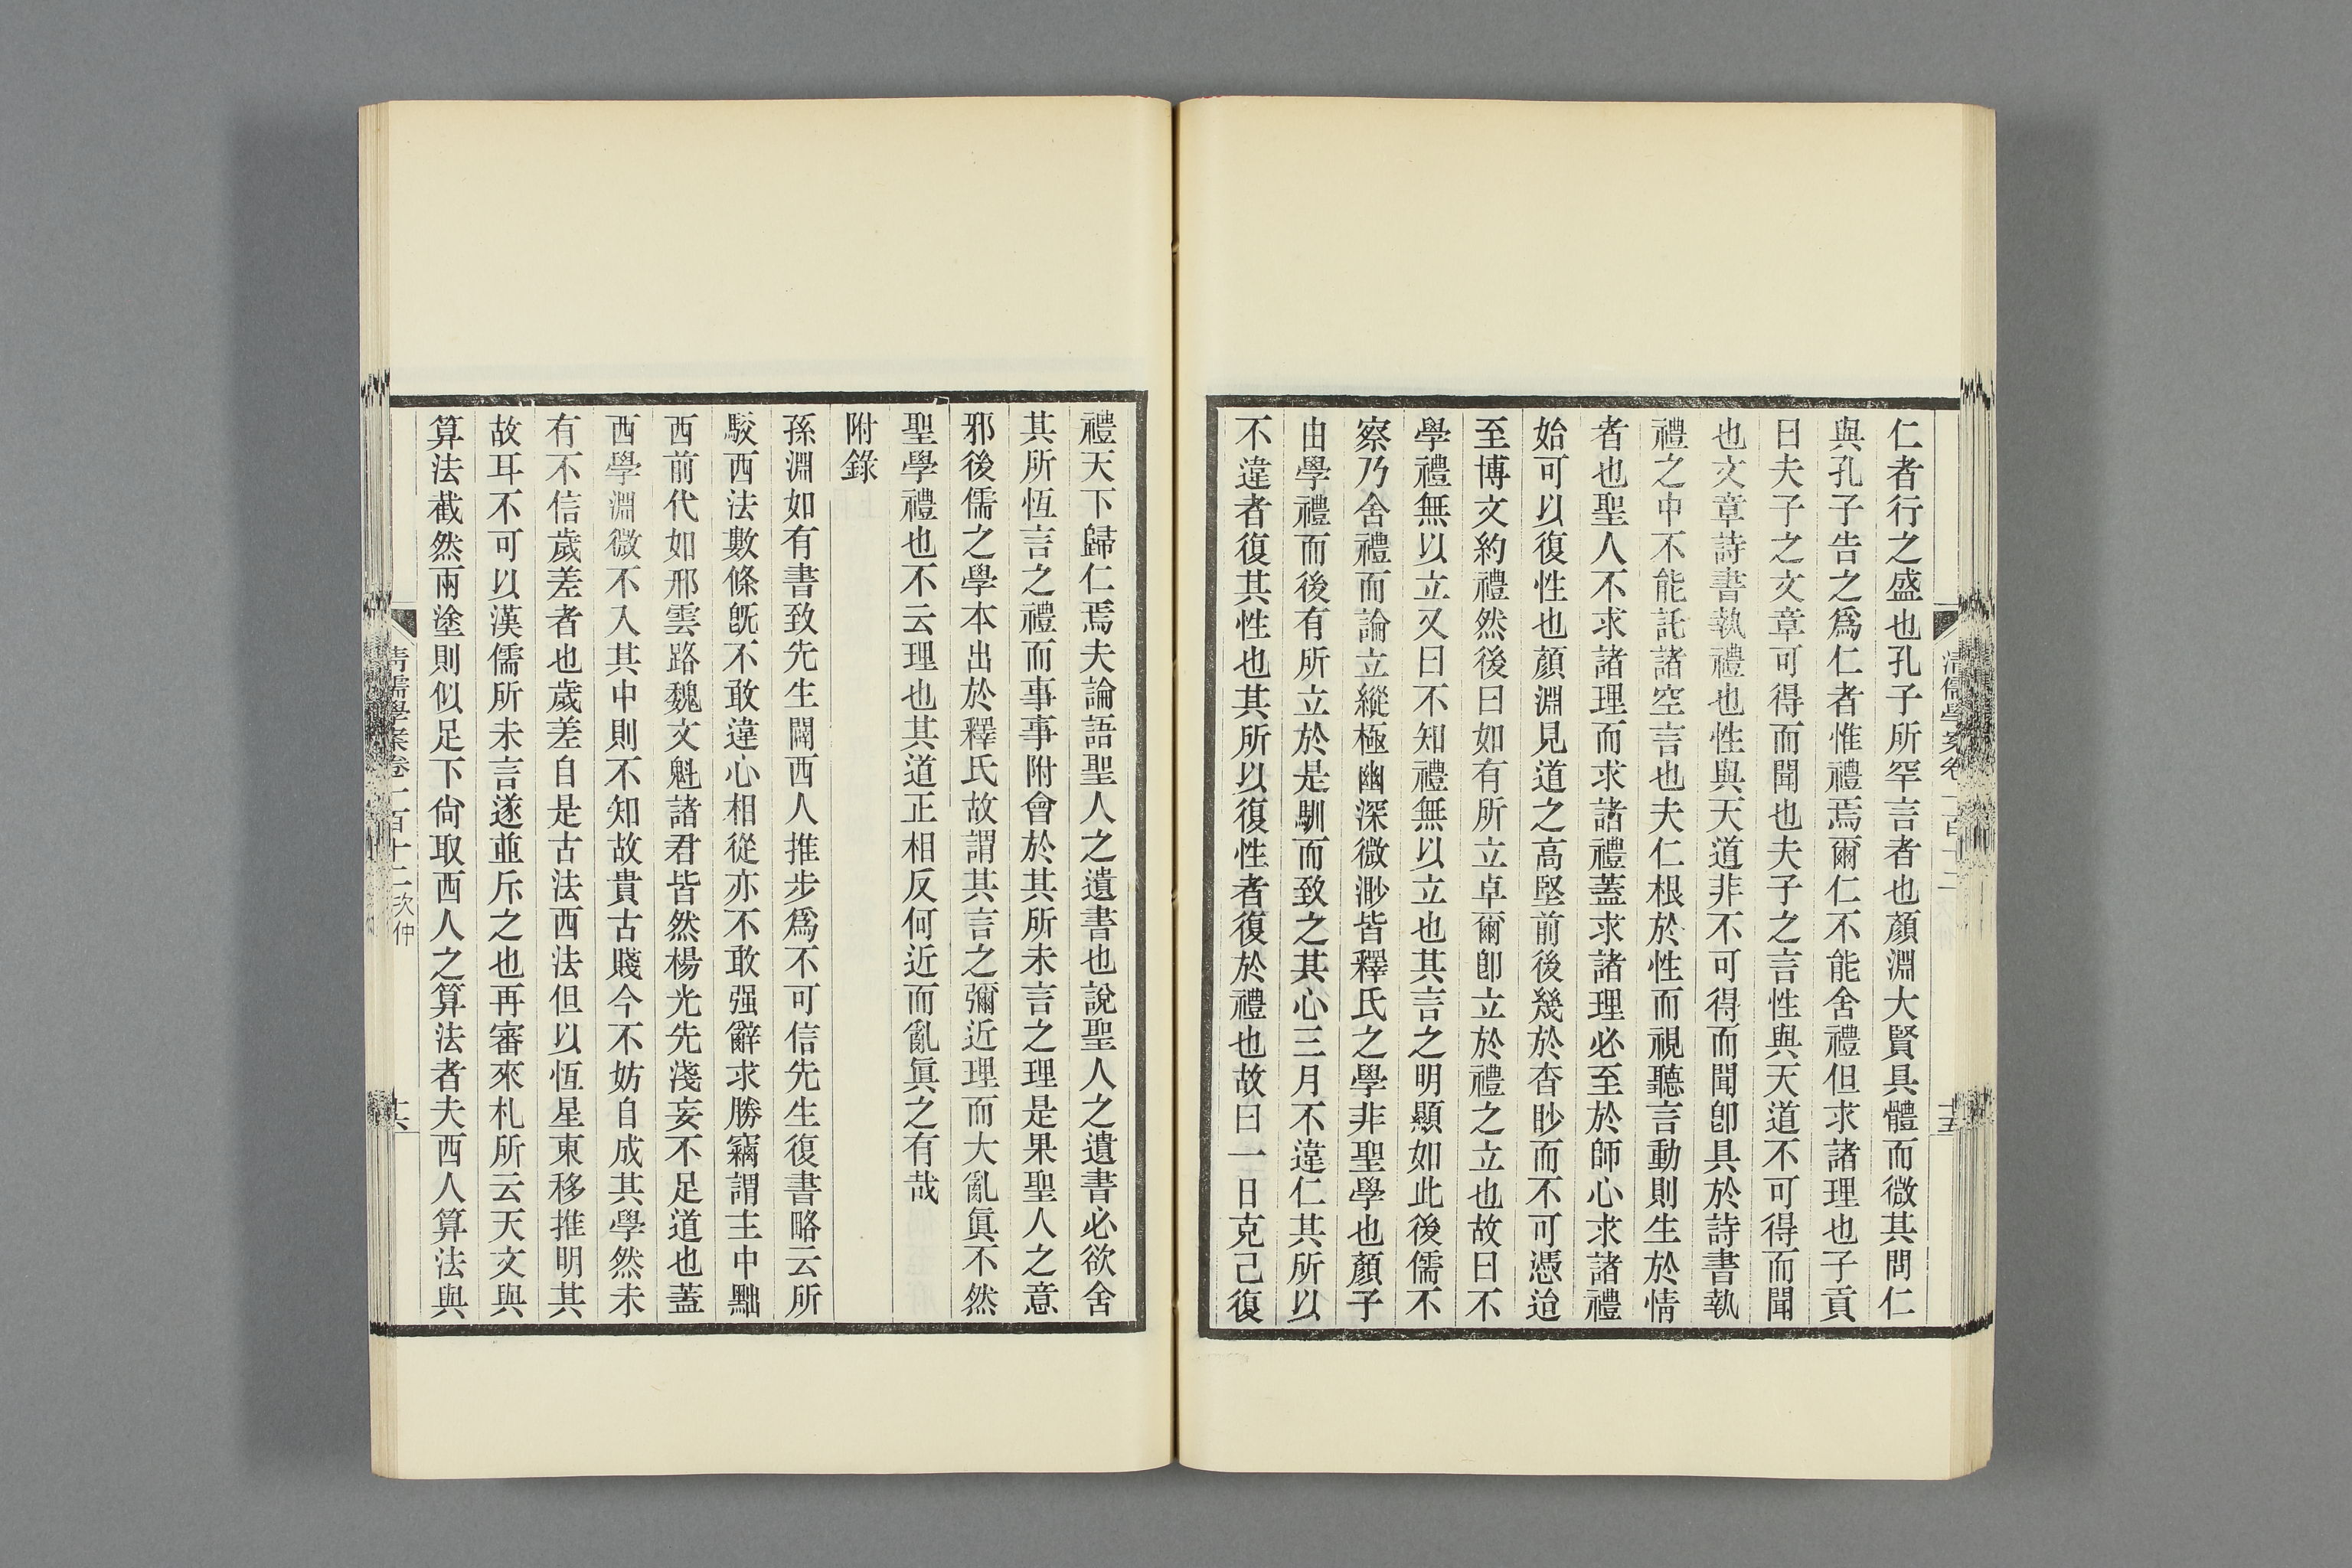 仁者行之盛也孔子所罕言者也顏淵大賢具體而微其問仁
與孔子告之爲仁者惟禮焉爾仁不能舍禮但求諸理也子貢
曰夫子之文章可得而聞也夫子之言性與天道不可得而聞
也文章詩書執禮也性與天道非不可得而聞卽具於詩書執
禮之中不能託諸空言也夫仁根於性而視聽言動則生於情
者也聖人不求諸理而求諸禮蓋求諸理必至於師心求諸禮
始可以復性也顏淵見道之高堅前後幾於杳眇而不可憑迨
至博文約禮然後曰如有所立卓爾卽立於禮之立也故曰不
學禮無以立又曰不知禮無以立也其言之明顯如此後儒不
察乃舍禮而論立縱極幽深微渺皆釋氏之學非聖學也顏子
由學禮而後有所立於是馴而致之其心三月不違仁其所以
不違者復其性也其所以復性者復於禮也故曰一日克己復
禮天下歸仁焉夫論語聖人之遺書也說聖人之遺書必欲舍
其所恆言之禮而事事附會於其所未言之理是果聖人之意
邪後儒之學本出於釋氏故謂其言之彌近理而大亂眞不然
聖學禮也不云理也其道正相反何近而亂眞之有哉
附錄
孫淵如有書致先生闢西人推步爲不可信先生復書略云所
駮西法數條旣不敢違心相從亦不敢强辭求勝竊謂主中黜
西前代如邢雲路魏文魁諸君皆然楊光先淺妄不足道也蓋
西學淵微不入其中則不知故貴古賤今不妨自成其學然未
有不信歲差者也歲差自是古法西法但以恆星東移推明其
故耳不可以漢儒所未言遂並斥之也再審來札所云天文與
算法截然兩塗則似足下尙取西人之算法者夫西人算法與
清儒學案卷一百十二次仲
十六